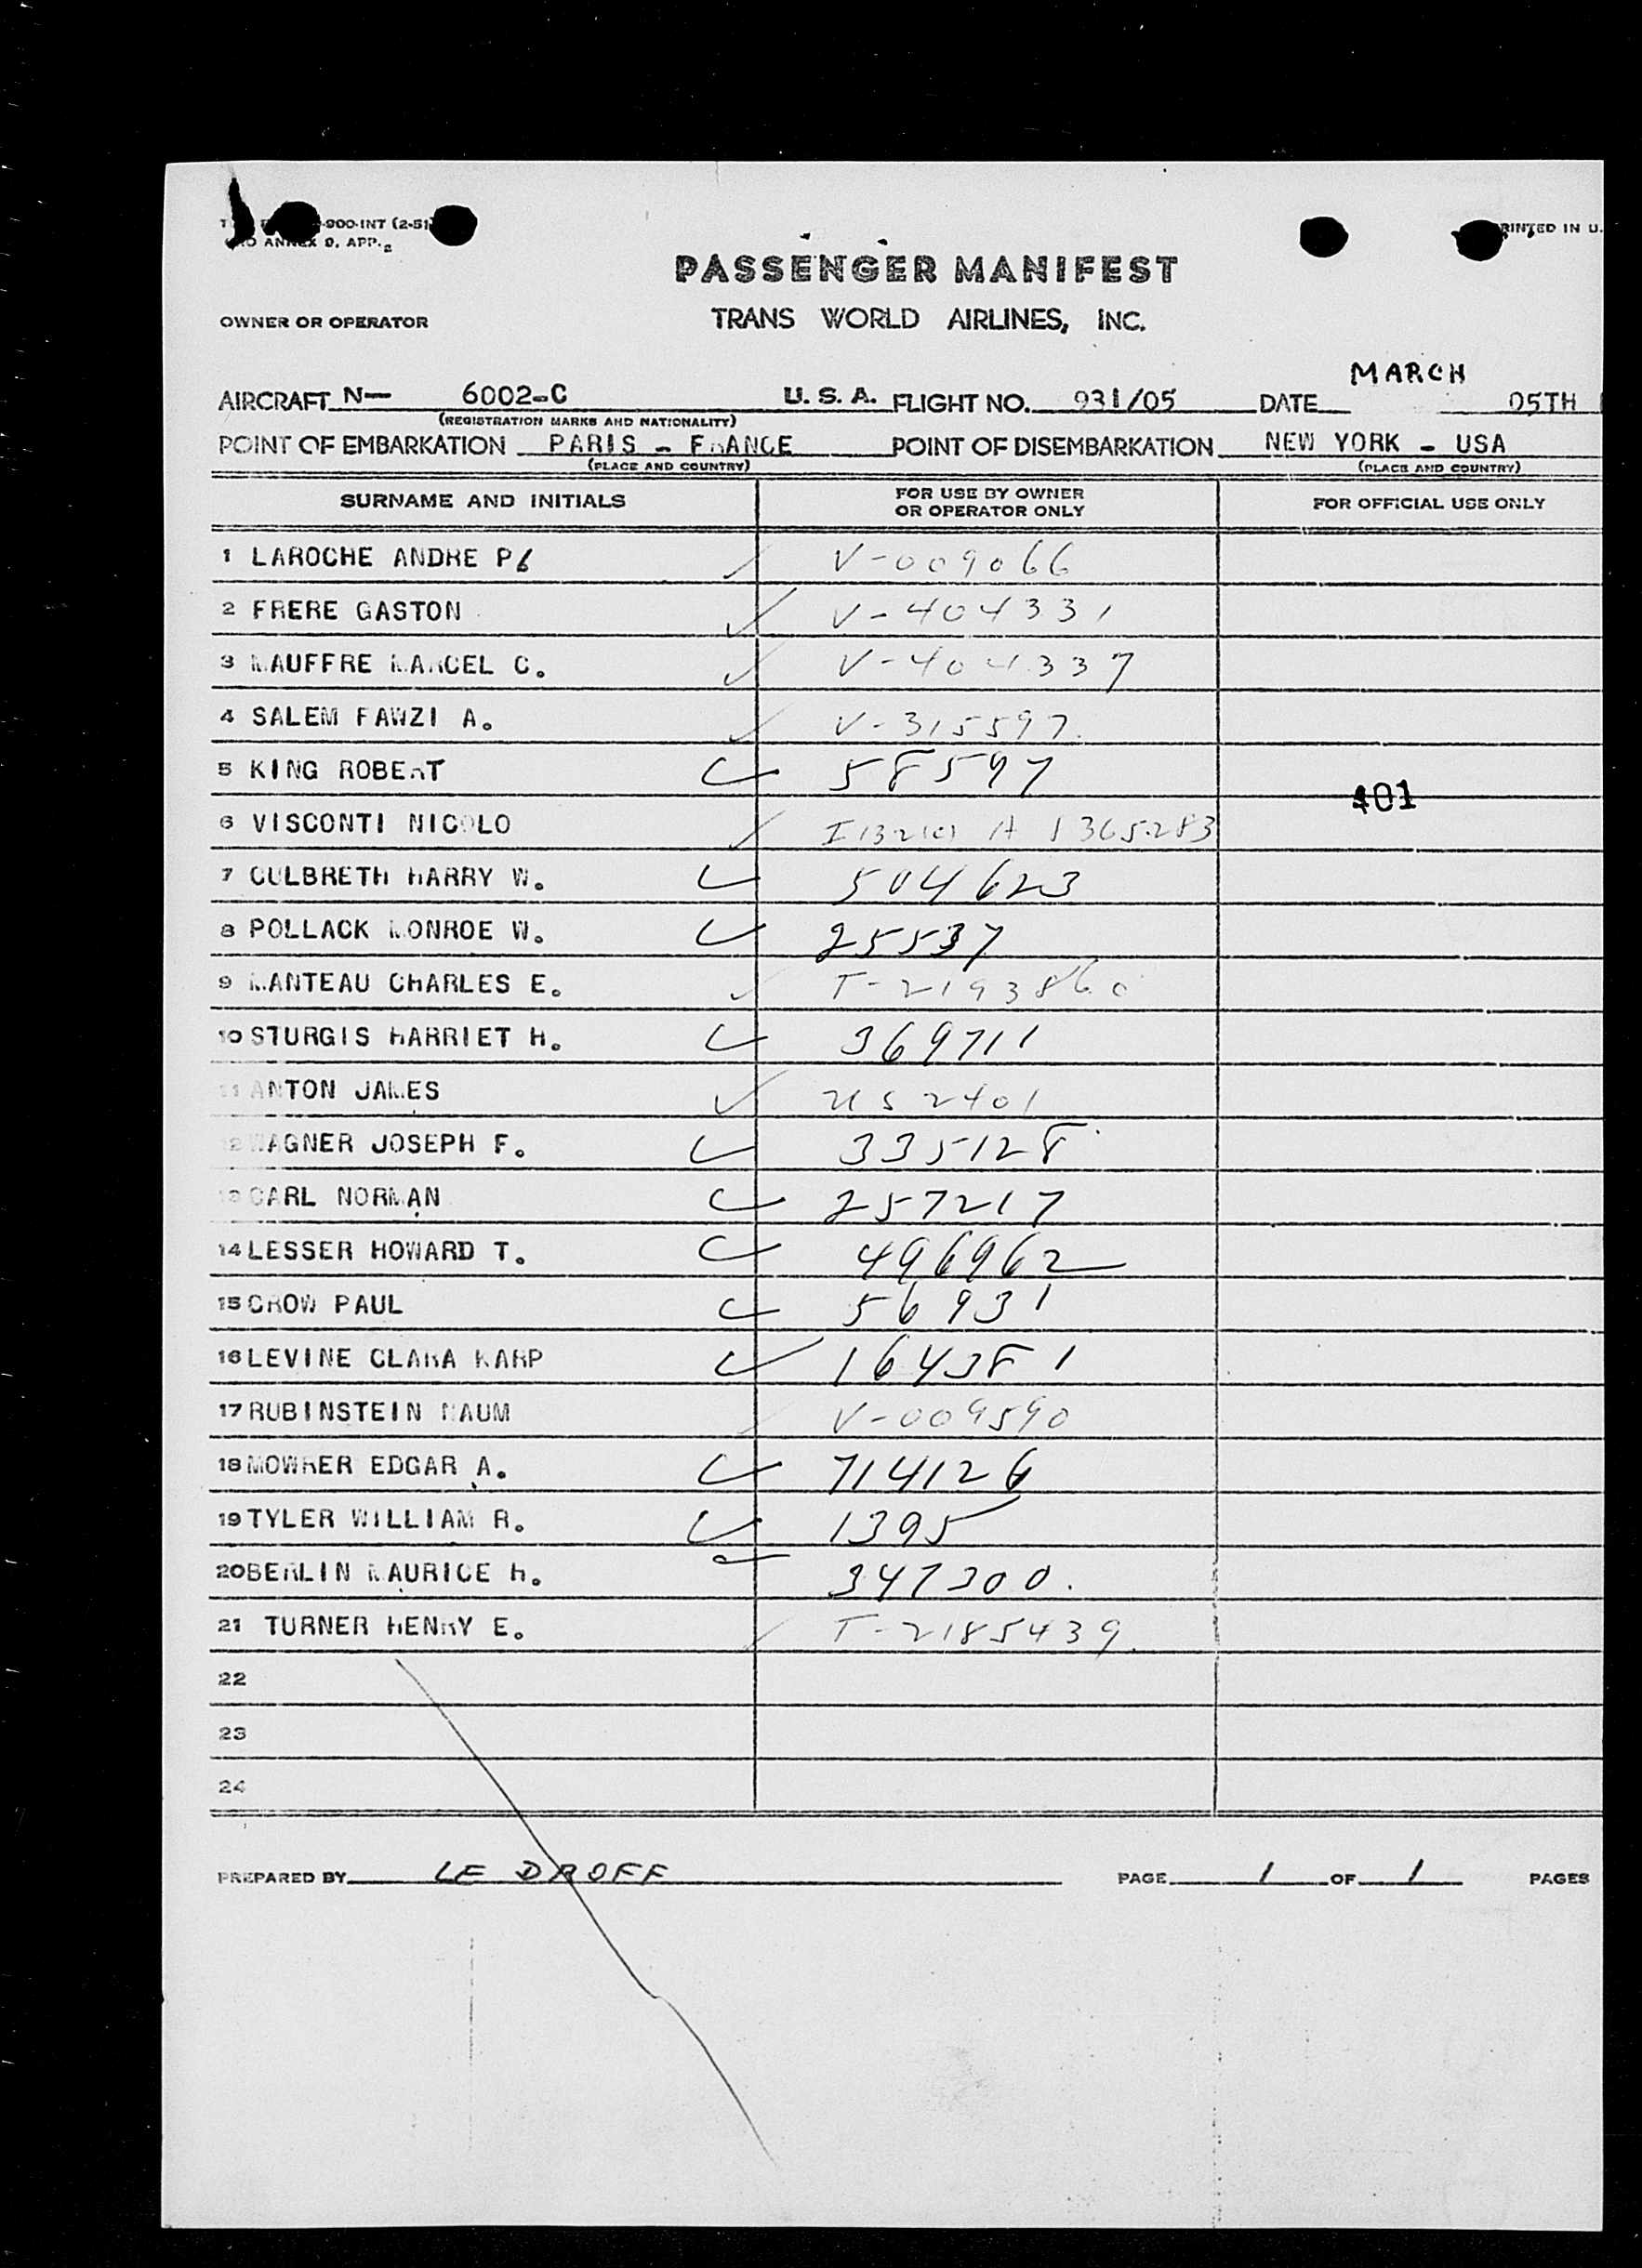 -900-INT (2-51)
ANNEX 9, APP. 2
PRINTED IN U.
PASSENGER MANIFEST
OWNER OR OPERATOR TRANS WORLD AIRLINES, INC.
MARCH
AIRCRAFT N— 6002-C U. S. A. FLIGHT NO. 931/05 DATE 05TH
(REGISTRATION MARKS AND NATIONALITY)
POINT OF EMBARKATION PARIS - FRANCE POINT OF DISEMBARKATION NEW YORK - USA
(PLACE AND COUNTRY) (PLACE AND COUNTRY)
SURNAME AND INITIALS FOR USE BY OWNER OR OPERATOR ONLY FOR OFFICIAL USE ONLY
1 LAROCHE ANDRE P. V-009066
2 FRERE GASTON V-404331
3 MAUFFRE MARCEL C. V-404337
4 SALEM FAWZI A. V-315597.
5 KING ROBERT 58597
401
6 VISCONTI NICOLO A 1365283
7 CULBRETH HARRY W. 504623
8 POLLACK MONROE W. 25537
9 MANTEAU CHARLES E. T-2193860
10 STURGIS HARRIET H. 369711
11 ANTON JAMES US 2401
12 WAGNER JOSEPH F. 335128
13 CARL NORMAN 257217
14 LESSER HOWARD T. 496962
15 CROW PAUL 56931
16 LEVINE CLARA KARP 164381
17 RUBINSTEIN NAUM V-009590
18 MOWRER EDGAR A. 714126
19 TYLER WILLIAM R. 1395
20 BERLIN MAURICE H. 347300.
21 TURNER HENRY E. T-2185439.
22
23
24
PREPARED BY LE DROFF PAGE 1 OF 1 PAGES